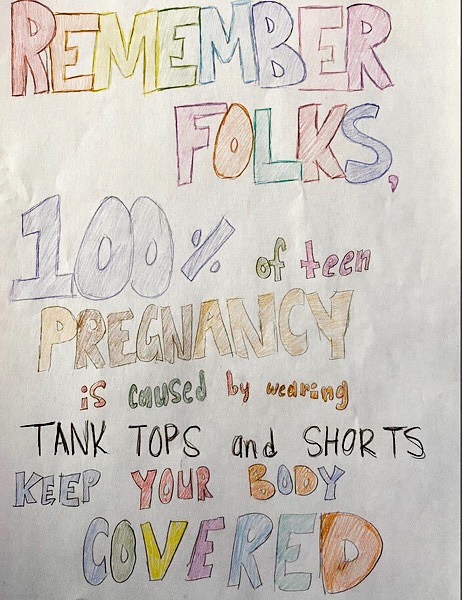 REMEMBER
FOLKS,
100% of teen
PREGNANCY
is caused by wearing
TANK TOPS and SHORTS
KEEP YOUR BODY
COVERED